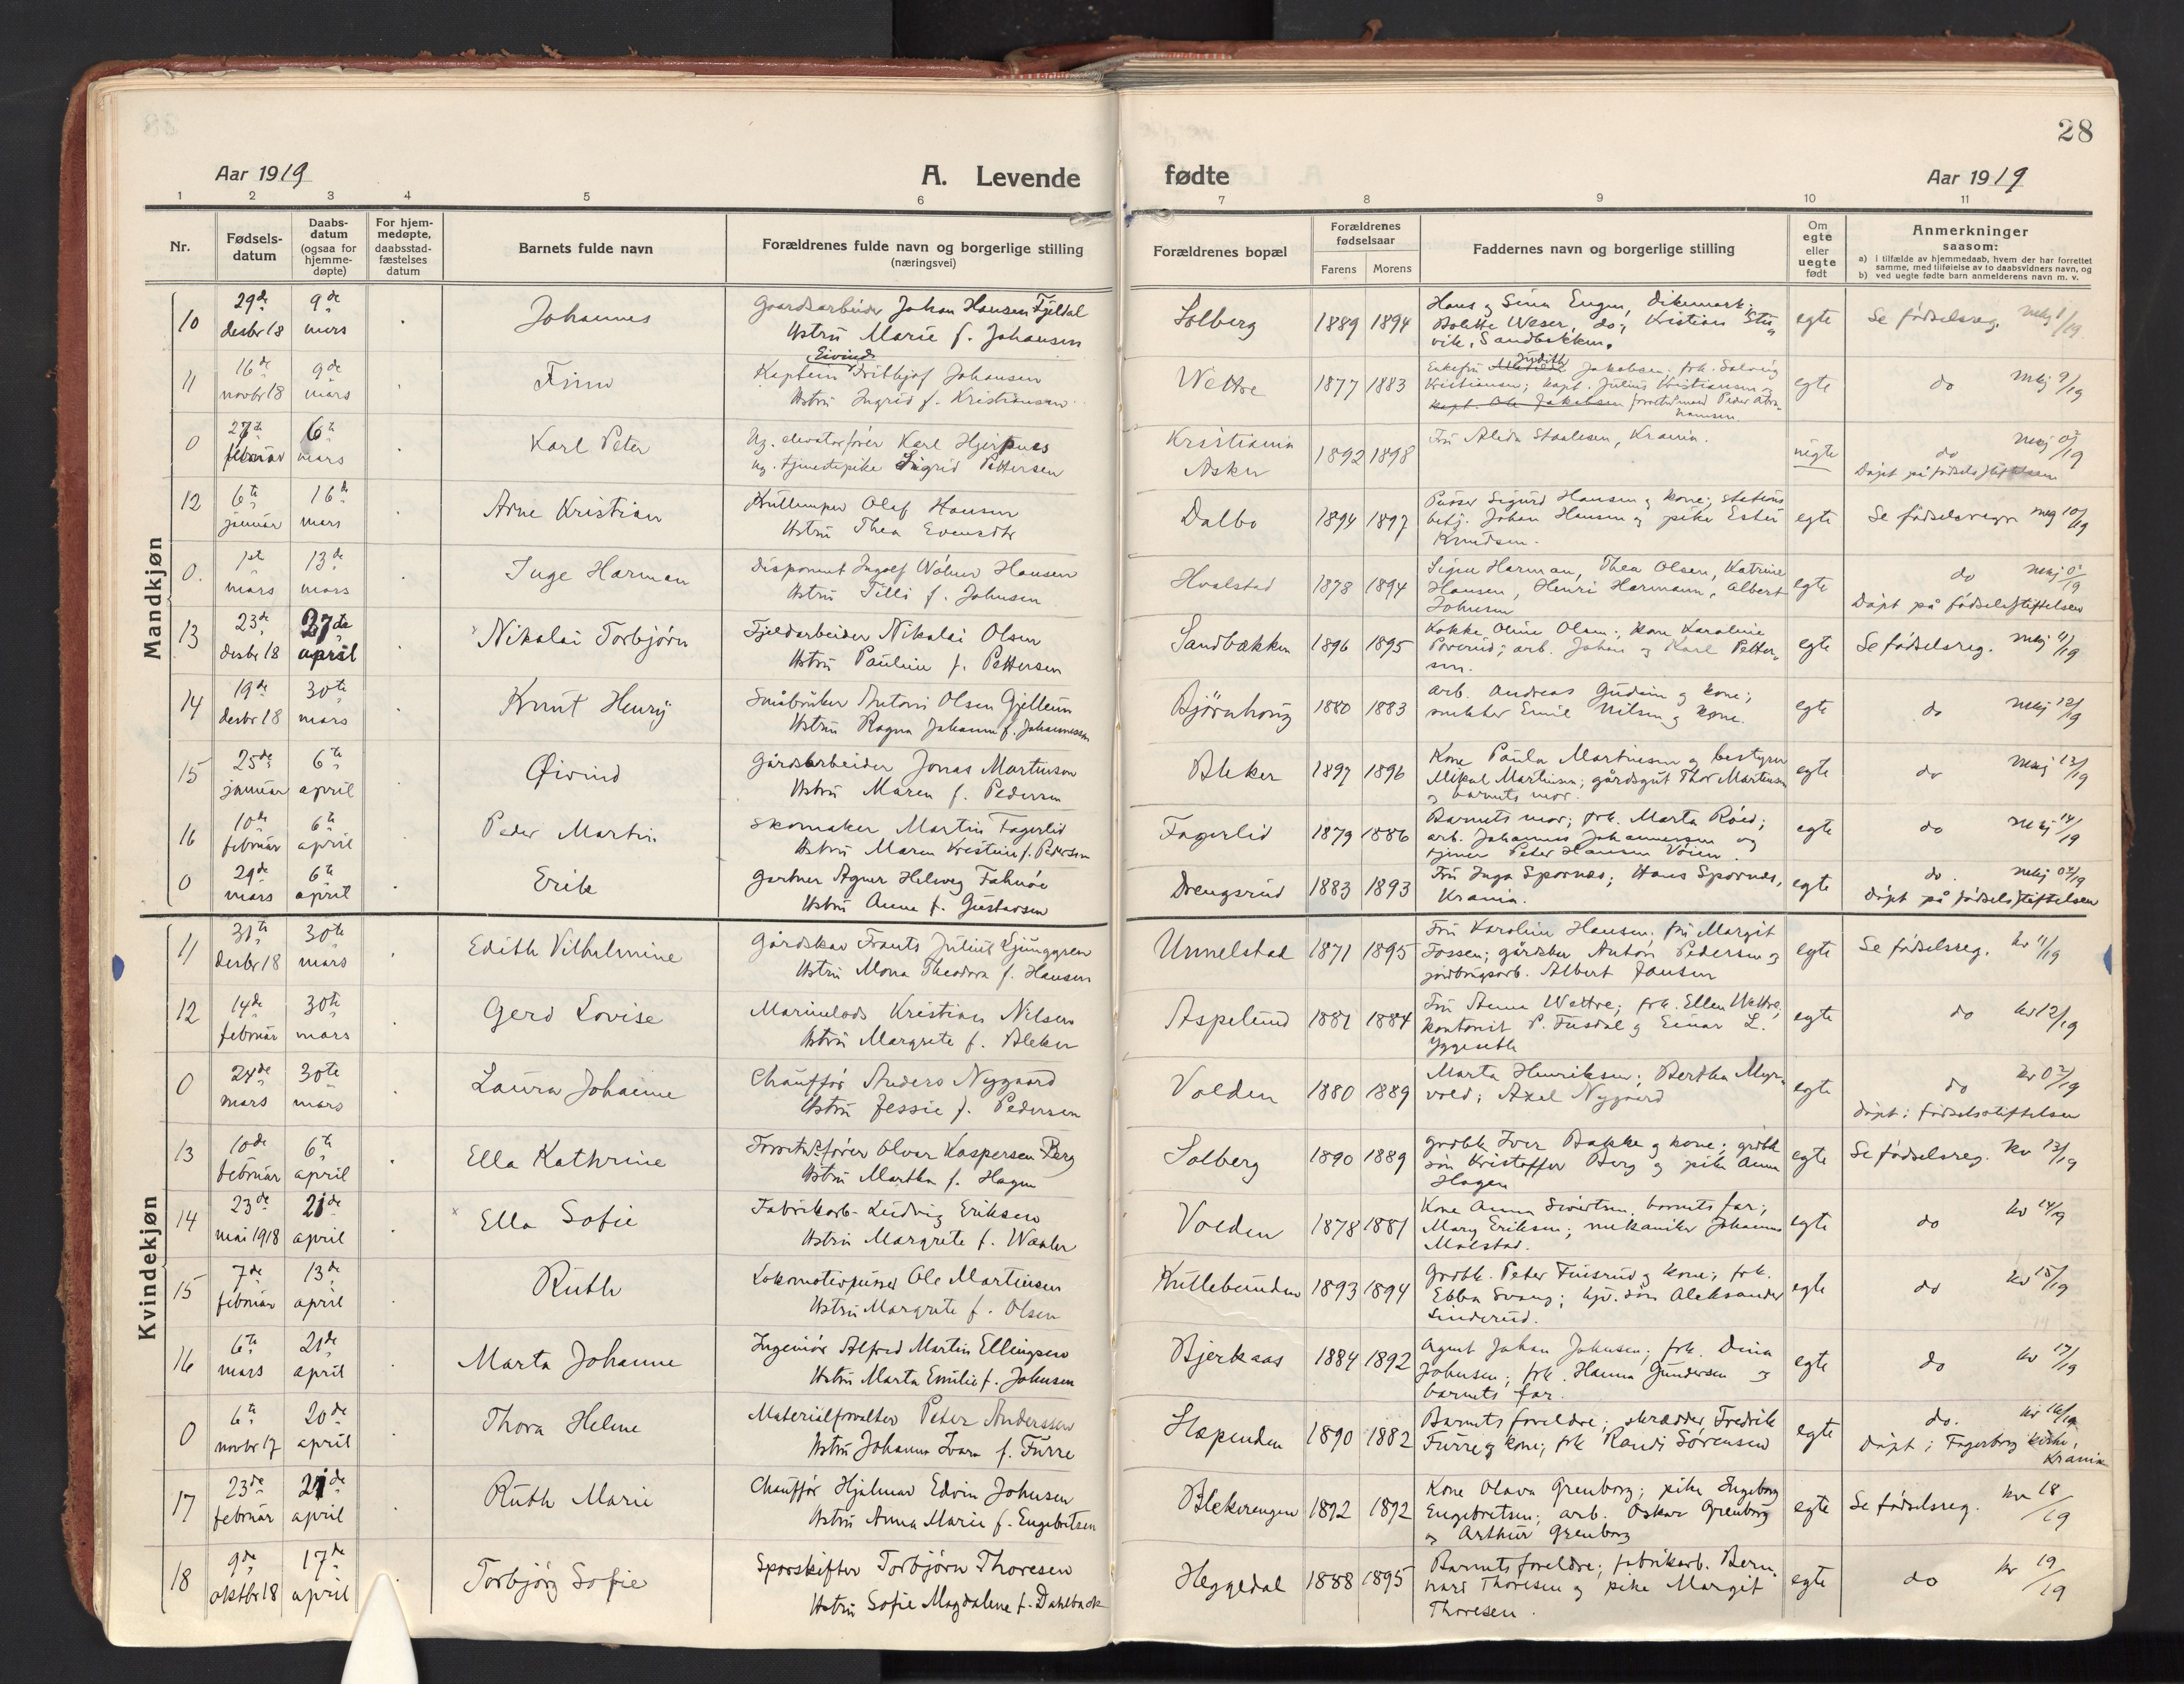 28
Aar 1919
A. Levende fødte
Aar 1919
1 2 3 4 5 6 7 8 9 10 11
Nr.
Fødsels-
datum
Daabs-
datum
(ogsaa for
hjemme-
døpte)
For hjem-
medøpte,
daabsstad-
fæstelses
datum
Barnets fulde navn
Forældrenes fulde navn og borgerlige stilling
(næringsvei)
Forældrenes bopæl
Forældrenes
fødselsaar
Farens Morens
Faddernes navn og borgerlige stilling
Om
egte
eller
uegte
født
Anmerkninger
saasom:
a) i tilfælde av hjemmedaab, hvem der har forrettet
samme, med tilføielse av to daabsvidners navn, og
b) ved uegte fødte barn anmelderens navn m. v.
Mandkjøn
10 29de desbr 18 9de mars Johannes
Gaardsarbeider Johan Hansen Fjeldal
Hstru Marie f. Johansen
Solberg 1889 1894
Hans og Sina Engen, Dikemark;
Bolette Weser, do; Kristian
vik, Sandbakken.
egte Se fødselsreg.
11 16de novbr 18 9de mars Finn
Eivind
Kaptein Frithjof Johansen
Hstru Ingrid f. Kristiansen
Wettre 1877 1883
Judith
Enkefru Jakobsen; frk. Solveig
Kristiansen; kapt. Julius Kristiansen og
kapt. Ole Jakobsen Peder Abra-
hamsen.
egte do mkj 9/19
0 27de februar 6te mars Karl Peter
Ug. elevatorfører Karl Hjertnes
ug. tjenestepike Sigrid Pettersen
Kristiania
Asker 1892 1898
Fru Alida Staalesen, Krania.
uegte do
Døpt på fødselsstiftelsen
12 6te januar 16de mars Arne Kristian
Olaf Hansen
Hstru Thea Evensdtr
Dalbo 1894 1897
Pusser Sigurd Hansen og kone; stations
betj. Johan Hansen og pike Ester
Knudsen.
egte Se fødselsregr mkj 10/19
0. 1ste mars 13de mars Inge Harman
Disponent Ingolf Hansen
Hstru Tilli f. Johnsen
Hvalstad 1878 1894
Signe Harman, Thea Olsen, Katrine
Hansen, Henri Harmann, Albert
Johnsen
egte do
Døpt på fødselsstiftelsen
13 23de desbr 18 27de april Nikolai Torbjørn
Fjeldarbeider Nikolai Olsen
Hstru Pauline f. Pettersen
Sandbækken 1896 1895
Kokke Oline Olsen; kone Karoline
arb. Johan og Karl Petter-
sen.
egte Se fødselsreg. mkj 11/19
14 19de desbr 18 30te mars Knut Henry
Småbruker Antoni Olsen Gjellum
Hstru Ragna Johanne f. Johannessen
Bjørnhoug 1880 1883
arb. Andreas Gudem og kone;
snekker Emil Nilsen og kone.
egte do mkj 12/19
15 25de januar 6te april Øivind
Gårdsarbeider Jonas Martinsen
Hstru Maren f. Pedersen
Bleker 1897 1896
Kone Paula Martinsen og bestyrer
Mikal Martinsen; gårdsgut Thor Martinsen
og barnets mor.
egte do mkj 13/19
16 10de februar 6te april Peder Martin
Skomaker Martin Fagerlid
Hstru Maren Kristine f. Pedersen
Fagerlid 1879 1886
Barnets mor; frk. Marta Röed;
arb. Johannes Johannessen og
tjener Peter Hansen Vøien.
egte do mkj 14/19
0 29de mars 6te april Erik
Gartner Agner Helweg Fahnøe
Hstru Anna f. Gustavsen
Drengsrud 1883 1893
Fru Inga Spornes; Hans Spornes,
Krania.
egte do.
Døpt på fødselsstiftelsen
Kvindekjøn
11 31te desbr 18 30te mars Edith Vilhelmine
Gårdskar Frants Julius Ljunggren
Hstru Mona Theodora f. Hansen
Unnelstad 1871 1895
Fru Karoline Hansen; fru Margit
Fossen; gårdskar Anton Pedersen og
jordbrugsarb. Albert Jansen
egte Se fødselsreg. kv 11/19
12 14de februar 30te mars Gerd Lovise
Marinelods Kristian Nilsen
Hstru Margrete f. Bleker
Aspelund 1881 1884
Fru Anna Wettre; frk. Ellen Wettre;
kontorist P. Fusdal og Einar L.
Yggeseth
egte do kv 12/19
0 24de mars 30te mars Laura Johanne
Chauffør Anders Nygaard
Hstru Jessie f. Pedersen
Volden 1880 1889
Marta Henriksen; Bertha Myr-
vold; Axel Nygaard
egte do
Døpt i fødselsstiftelsen
13 10de februar 6te april Ella Kathrine
Olvar Kaspersen Berg
Hstru Martha f. Hagen
Solberg 1890 1889
Grdbr. Iver Bakke og kone; grdbr.
søn Kristoffer Berg og pike Anna
Hagen
egte Se fødselsreg. kv 13/19
14 23de mai 1918 21de april Ella Sofie
Fabrikarb. Ludvig Eriksen
Hstru Margrete f.
Volden 1878 1881
Kone Anna Sivertsen, barnets far;
Mary Eriksen; mekaniker Johannes
Malstad.
egte do kv 14/19
15 7de februar 13de april Ruth
Lokomotivpusser Ole Martinsen
Hstru Margrete f. Olsen
1893 1894
Grdbr. Peter Finsrud og kone; frk.
Ebba Svang; søn Aleksander
Linderud.
egte do kv 15/19
16 6te mars 21de april Marta Johanne
Ingeniør Alfred Martin Ellingsen
Hstru Marta Emilie f. Johnsen
Bjerkaas 1884 1892
Agent Johan Johnsen; frk. Dina
Johnsen; frk. Hanna Gundersen og
barnets far.
egte do kv 17/19
0 6te novbr 17 20de april Thora Helene
Materialforvalter Peter Anderssen
Hstru Johanna f. Furre
Hapenden 1890 1882
Barnets foreldre; skrædder Fredrik
Furre og kone; frk Randi Sørensen
egte do. kv 16/19
Døpt i Fagerborg kirke,
Krania
17 23de februar 21de april Ruth Marie
Chauffør Hjalmar Edvin Johnsen
Hstru Anna Marie f. Engebretsen
Blekerengen 1892 1892
Kone Olava Grenborg; pike Ingeborg
Engebretsen; arb. Oskar Grenborg
og Arthur Grenborg
egte Se fødselsreg. kv 18/19
18 9de oktbr 18 17de april Torbjørg Sofie
Sporskifter Torbjørn Thoresen
Hstru Sofie Magdalene f. Dahlback
Heggedal 1888 1895
Barnets foreldre; fabrikarb. Bern-
hard Thoresen og pike Margit
Thoresen.
egte do kv 19/19